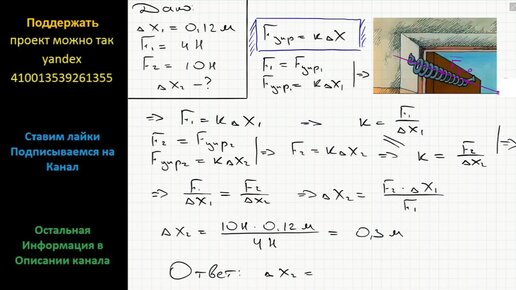 Поддержать
проект можно так
yandex
410013539261355
Ставим лайки
Подписываемся на
Канал
Остальная
Информация в
Описании канала
Дано:
Δx₁ = 0,12 м
F₁ = 4 Н
F₂ = 10 Н
Δx₂ - ?
Fупр = кΔx
F₁ = Fупр₁
Fупр₁ = кΔx₁ | ⇒
⇒ F₁ = кΔx₁ ⇒ к = F₁/Δx₁
F₂ = Fупр₂
Fупр₂ = кΔx₂ | ⇒ F₂ = кΔx₂ ⇒ к = F₂/Δx₂ | ⇒
⇒ F₁/Δx₁ = F₂/Δx₂ ⇒ Δx₂ = F₂·Δx₁/F₁
Δx₂ = 10Н·0,12м/4Н = 0,3 м
Ответ: Δx₂ =